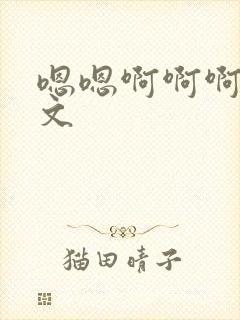 嗯嗯啊啊啊
文
猫田晴子